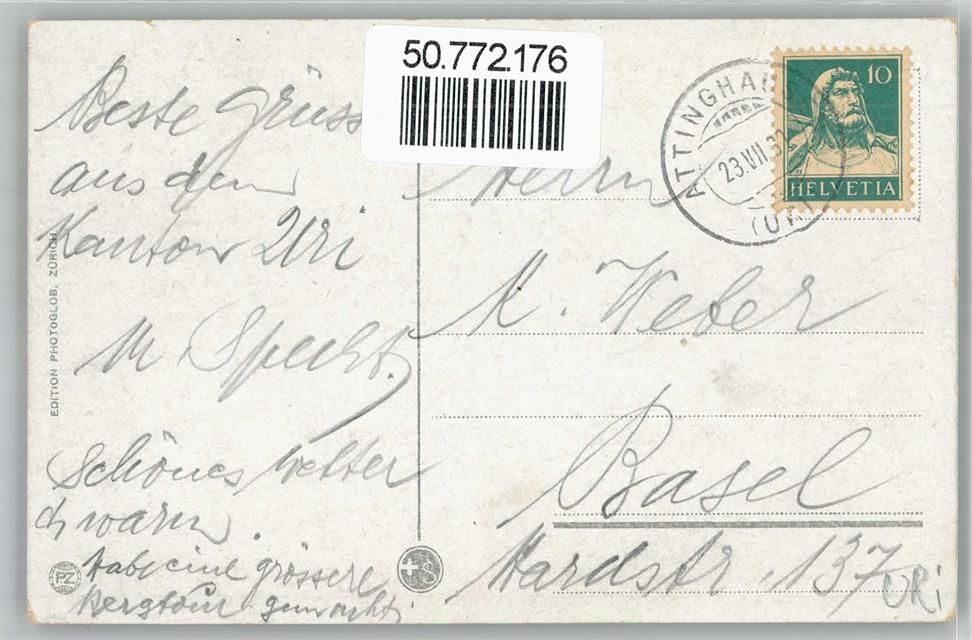 50.772.176
Beste Grüss
aus dem
Kanton Uri
M Specht.
Schönes Wetter
& warm.
Habe eine grössere
Bergtour gemacht.
EDITION PHOTOGLOB, ZÜRICH
PZ
ATTINGHAU
23.VII.32
(UR
10
HELVETIA
Herrn
K. Weber
Basel
Hardstr. 137
URi